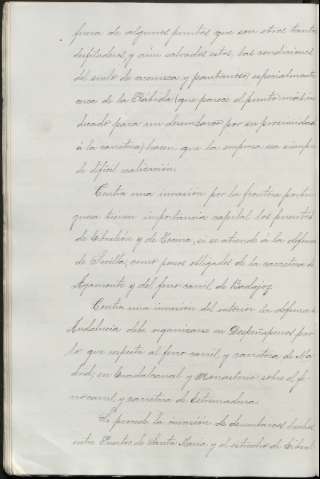 fuera de algunos puntos que son otros tantos
desfiladeros y aún salvados estos, las condiciones
del suelo de arenisca y pantanoso especialmente
cerca de la Rábida (que parece el punto más in
dicado para un desembarco por su proximidad
á la carretera) hacen que la empresa sea siempre
de difícil realización.
Contra una invasión por la frontera portu-
guesa tienen importancia capital los puentes
de Gibraleón y de              si se atiende á la defensa
de Sevilla, como pasos obligados de la carretera de
Ayamonte y del ferro-carril de Badajoz.
Contra una invasión del interior la defensa de
Andalucía debe organizarse en Despeñaperros por
lo que respecta al ferro carril y carretera de Ma
drid; en Guadalcanal y Monasterio sobre el fe
rro carril y carretera de Extremadura.
Si procede la invasión de desembarcos hechos
entre Puerto de Santa María y el estrecho de Gibral